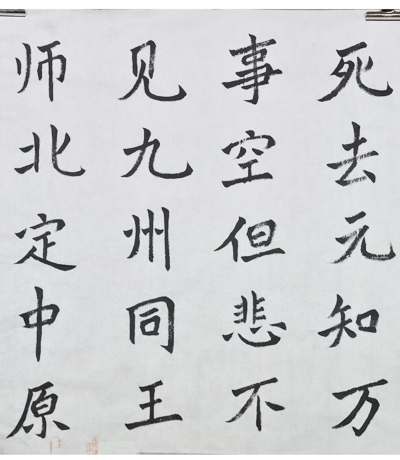 死去元知万
事空但悲不
见九州同王
师北定中原